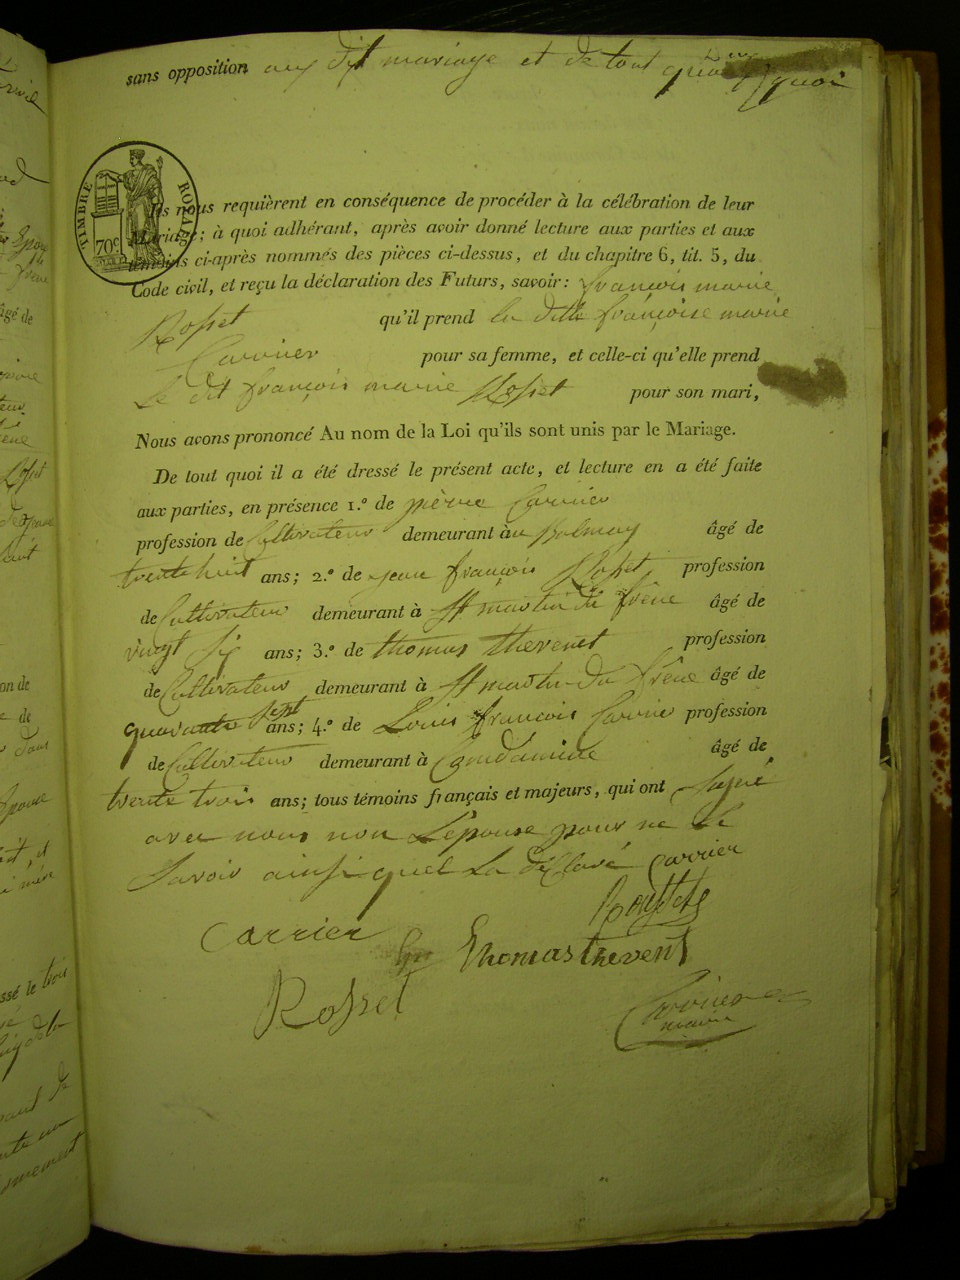 sans opposition au dit mariage et de tout quoi
TIMBRE ROYAL
70c
Ils nous requièrent en conséquence de procéder à la célébration de leur
Mariage; à quoi adhérant, après avoir donné lecture aux parties et aux
témoins ci-après nommés des pièces ci-dessus, et du chapitre 6, tit. 5, du
Code civil, et reçu la déclaration des Futurs, savoir: françois marie
Rosset qu'il prend la dite françoise marie
Carrier pour sa femme, et celle-ci qu'elle prend
Le dit françois marie Rosset pour son mari,
Nous avons prononcé Au nom de la Loi qu'ils sont unis par le Mariage.
De tout quoi il a été dressé le présent acte, et lecture en a été faite
aux parties, en présence 1.º de pierre Carrier
profession de Cultivateur demeurant à au Balmay âgé de
trente huit ans; 2.º de jean françois Rosset profession
de Cultivateur demeurant à St martin du frêne âgé de
vingt six ans; 3.º de thomas thevenet profession
de Cultivateur demeurant à St martin du frêne âgé de
quarante sept ans; 4.º de Louis françois Carrier profession
de Cultivateur demeurant à Condamine âgé de
trente trois ans; tous témoins français et majeurs, qui ont signé
avec nous non L'épouse pour ne le
Savoir ainsi quel La déclaré Carrier
Carrier Thomas thevent
Rosset Carrier
maire